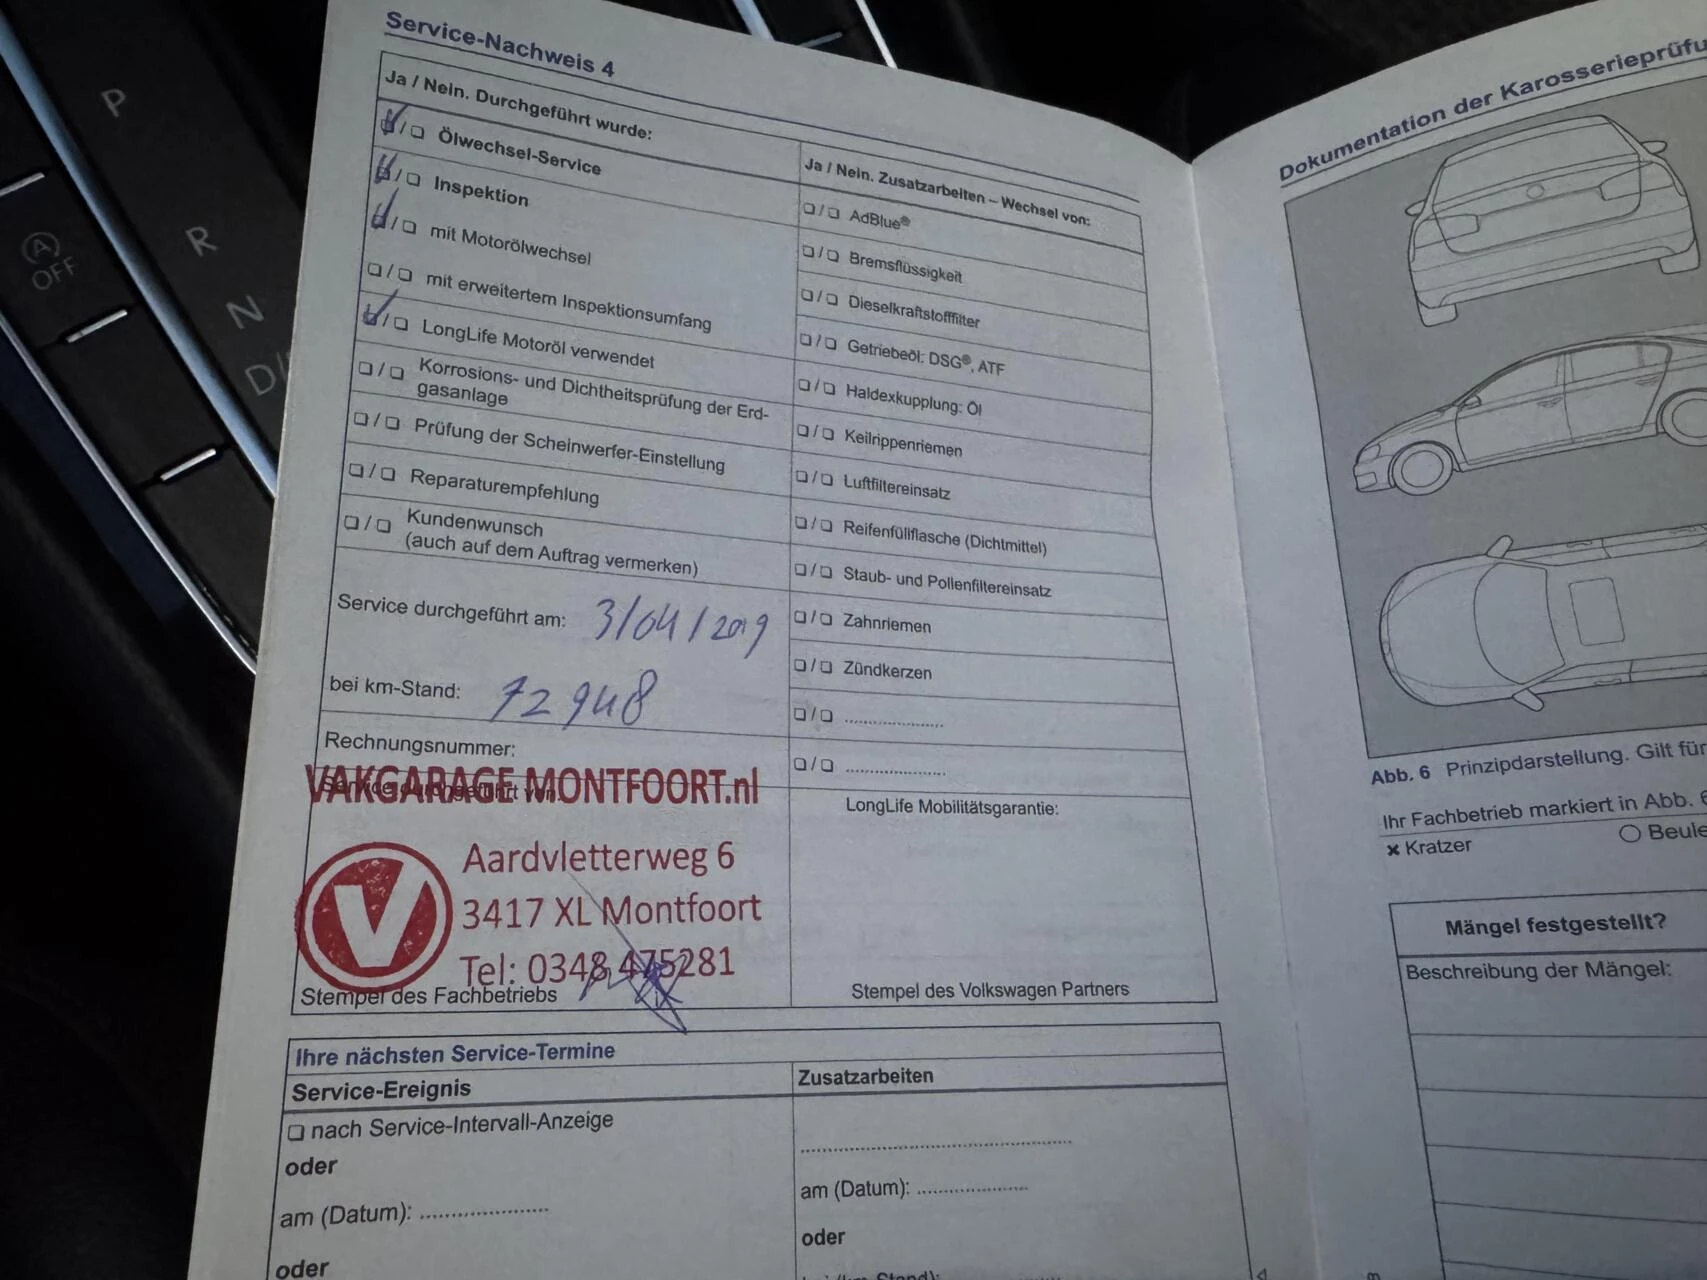 P
R
N
A
OFF
Service-Nachweis 4
Ja / Nein. Durchgeführt wurde:
❏ / ❏ Ölwechsel-Service
❏ / ❏ Inspektion
❏ / ❏ mit Motorölwechsel
❏ / ❏ mit erweitertem Inspektionsumfang
❏ / ❏ LongLife Motoröl verwendet
❏ / ❏ Korrosions- und Dichtheitsprüfung der Erd-
gasanlage
❏ / ❏ Prüfung der Scheinwerfer-Einstellung
❏ / ❏ Reparaturempfehlung
❏ / ❏ Kundenwunsch
(auch auf dem Auftrag vermerken)
Service durchgeführt am: 3/04/2019
bei km-Stand: 72948
Rechnungsnummer:
Service durchgeführt von:
VAKGARAGE MONTFOORT.nl
V
Aardvletterweg 6
3417 XL Montfoort
Tel: 0348 475281
Stempel des Fachbetriebs
Ja / Nein. Zusatzarbeiten – Wechsel von:
❏ / ❏ AdBlue®
❏ / ❏ Bremsflüssigkeit
❏ / ❏ Dieselkraftstofffilter
❏ / ❏ Getriebeöl: DSG®, ATF
❏ / ❏ Haldexkupplung: Öl
❏ / ❏ Keilrippenriemen
❏ / ❏ Luftfiltereinsatz
❏ / ❏ Reifenfüllflasche (Dichtmittel)
❏ / ❏ Staub- und Pollenfiltereinsatz
❏ / ❏ Zahnriemen
❏ / ❏ Zündkerzen
❏ / ❏ ......................
❏ / ❏ ......................
LongLife Mobilitätsgarantie:
Stempel des Volkswagen Partners
Ihre nächsten Service-Termine
Service-Ereignis
❏ nach Service-Intervall-Anzeige
oder
am (Datum): ......................
oder
Zusatzarbeiten
..............................................
am (Datum): ....................
oder
Dokumentation der
Abb. 6 Prinzipdarstellung. Gilt für
Ihr Fachbetrieb markiert in Abb. 6
× Kratzer
○ Beule
Mängel festgestellt?
Beschreibung der Mängel: